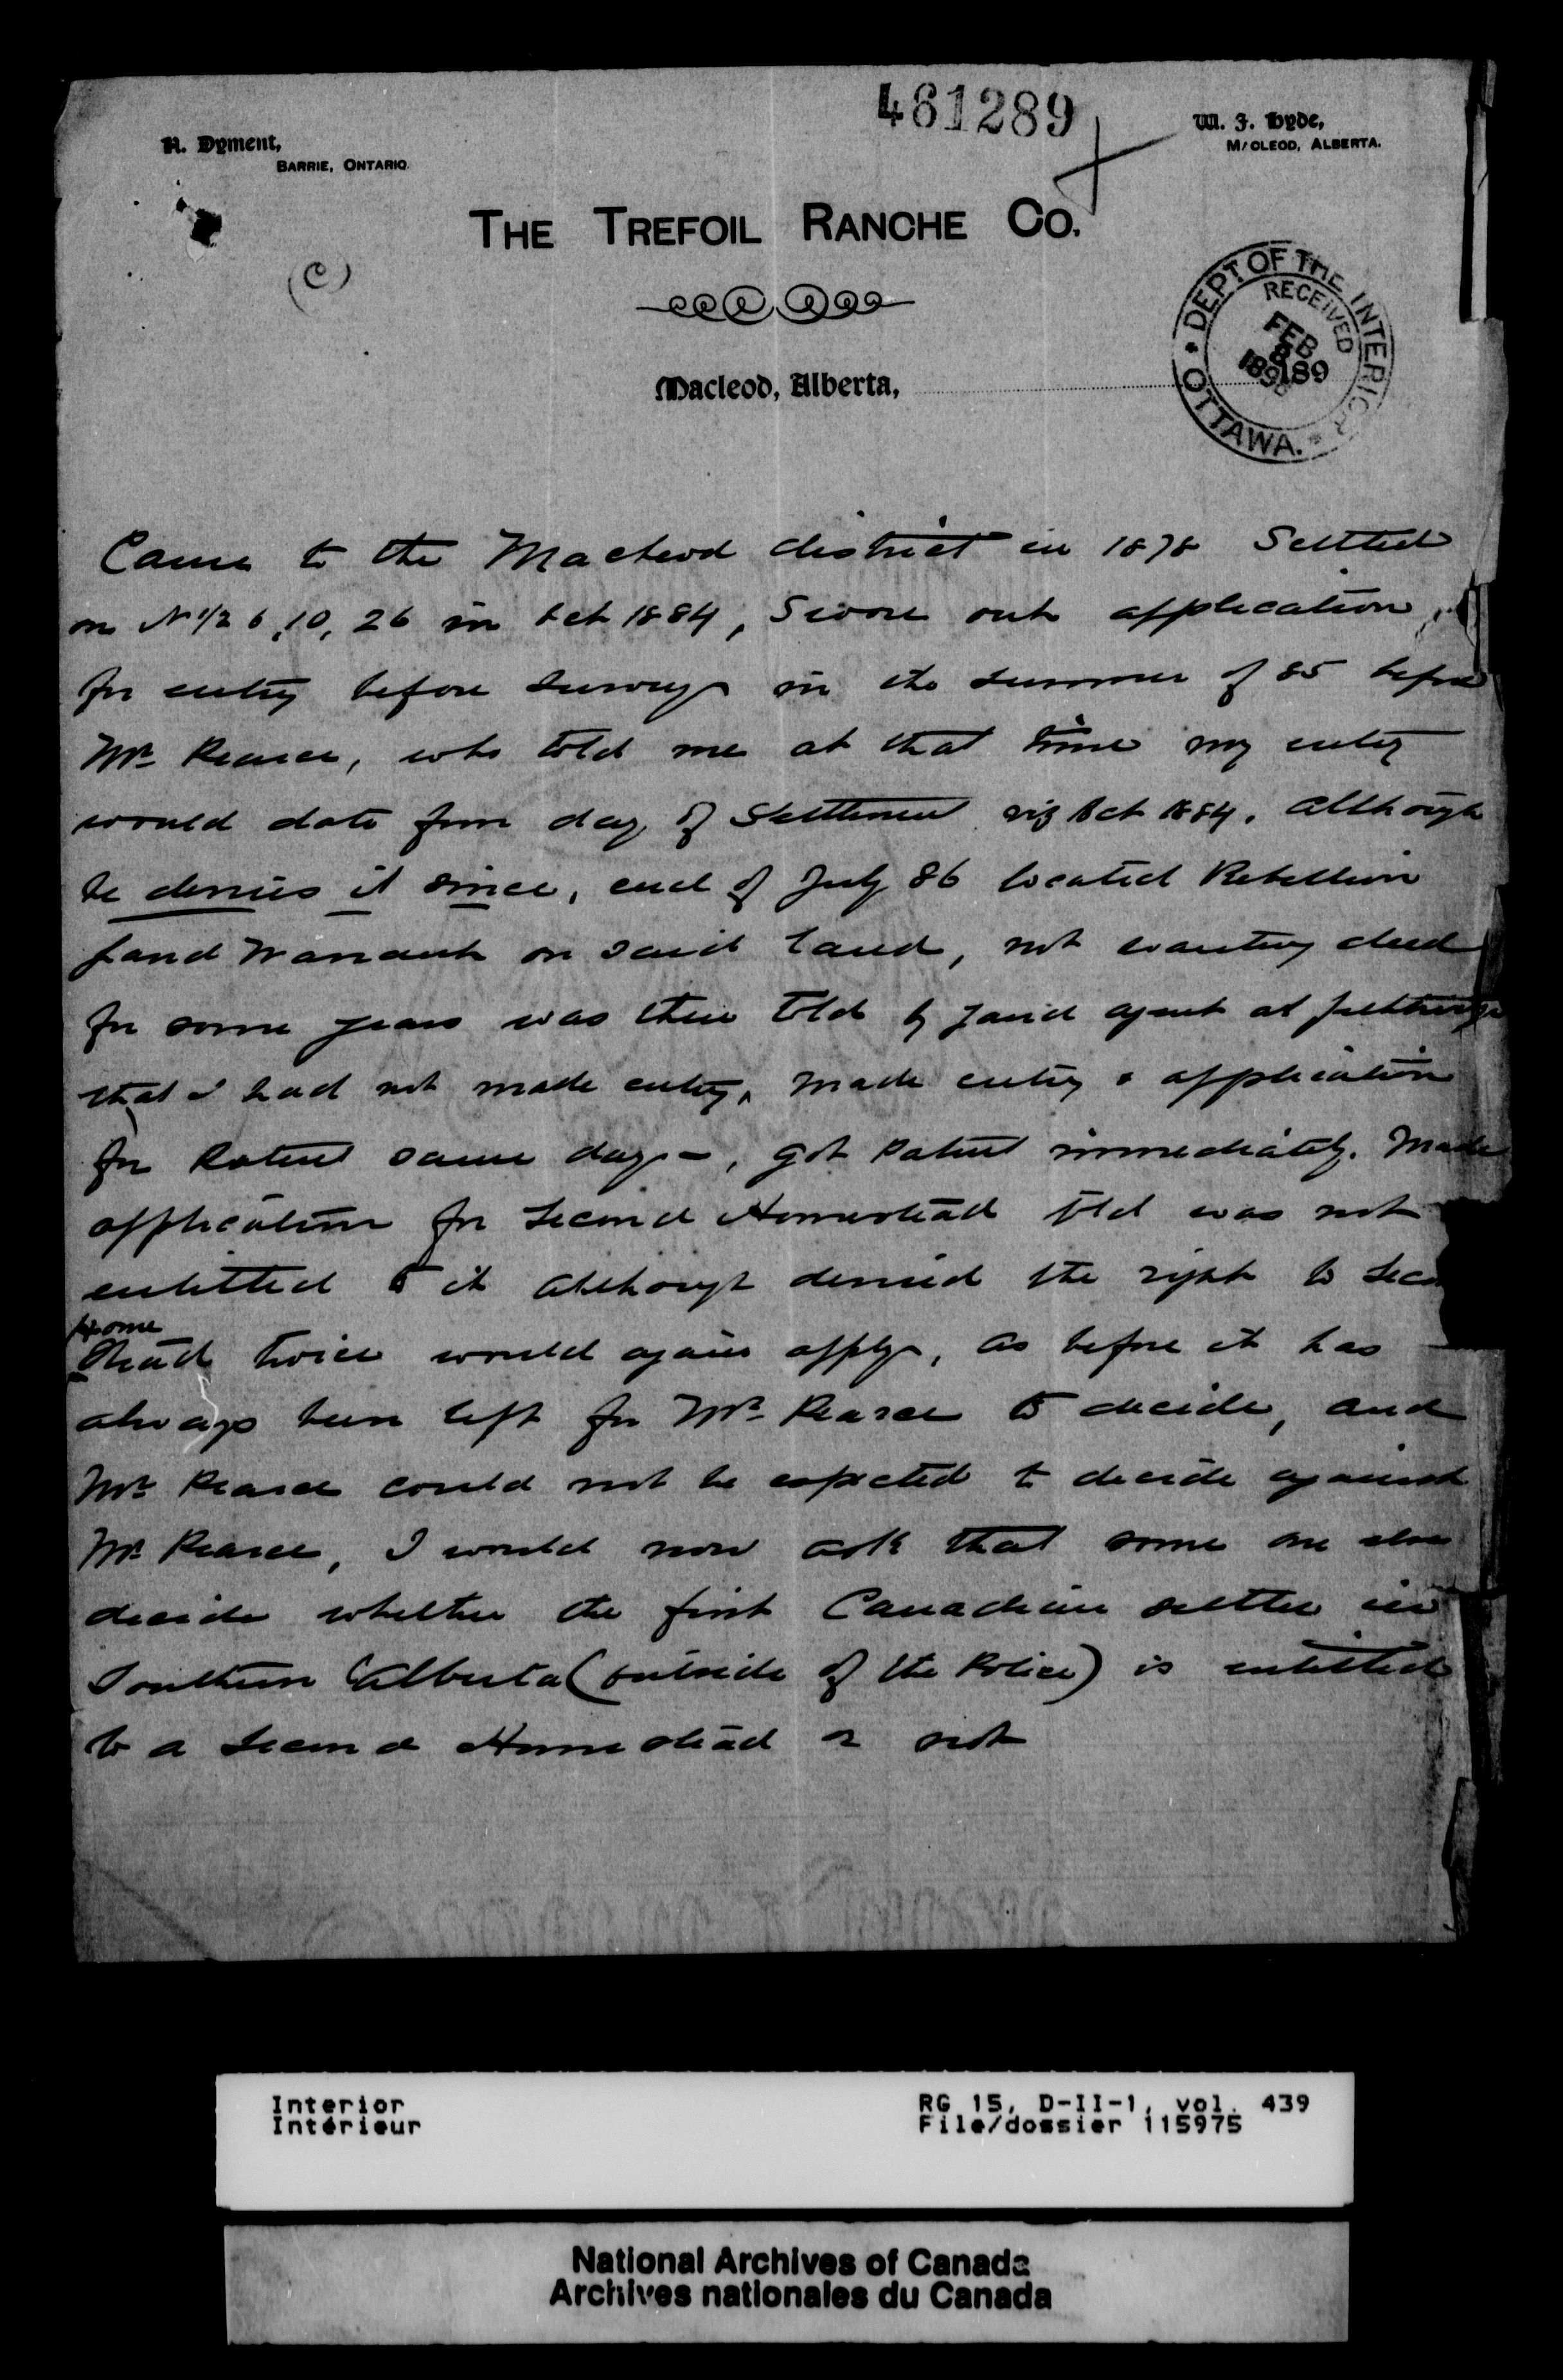 461289
A. Dyment,
BARRIE, ONTARIO.
W. F. Hyde,
M/CLEOD, ALBERTA.
THE TREFOIL RANCHE CO.
(C)
DEPT. OF THE INTERIOR
RECEIVED
FEB
8
189
OTTAWA.
Macleod, Alberta,
Came to the Macleod district in 1878 Settled
on N 1/2 6, 10, 26 in Oct 1884, Swore out application
for entry before survey in the summer of 85 before
Mr. Pearce, who told me at that time my entry
would date from day of Settlement viz Oct 1884, although
he denies it since, end of July 86 located Rebellion
Land Warrant on said land, not wanting deed
for some years was then told by Land agent at Lethbridge
that I had not made entry, made entry & application
for Patent same day –, got Patent immediately. Made
application for Second Homestead told was not
entitled to it although denied the right to Seco
Home
Stead twice would again apply, as before it has
always been left for Mr. Pearce to decide, and
Mr. Pearce could not be expected to decide against
Mr. Pearce, I would now ask that some one else
decide whether the first Canadian settler in
Southern Alberta (outside of the Police) is entitled
to a Second Homestead or not
Interior
Intérieur
RG 15, D-II-1, vol. 439
File/dossier 115975
National Archives of Canada
Archives nationales du Canada